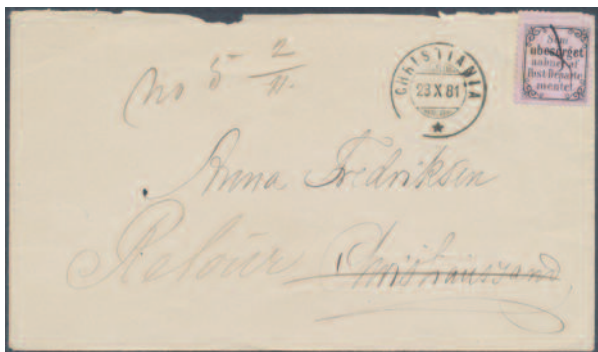 no 5 2
11.
CHRISTIANIA
23 X 81
Som
ubesørget
aabnet af
Post Departe
mentet
Anna Fredriksen
Retour Christianssand